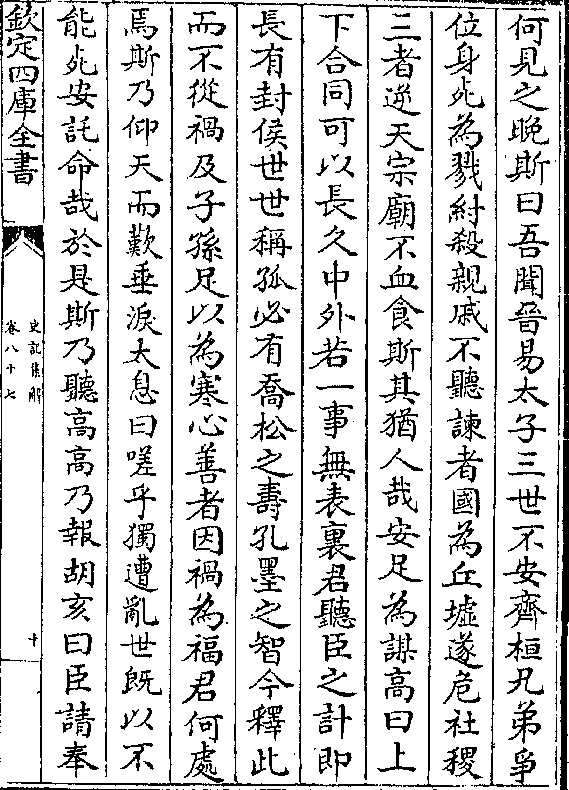 何見之晚斯曰吾聞晉易太子三世不安齊桓兄弟爭
位身死為戮紂殺親戚不聽諫者國為丘墟遂危社稷
三者逆天宗廟不血食斯其猶人哉安足為謀高曰上
下合同可以長久中外若一事無表裏君聽臣之計即
長有封侯世世稱孤必有喬松之壽孔墨之智今釋此
而不從禍及子孫足以為寒心善者因禍為福君何處
焉斯乃仰天而歎垂淚太息曰嗟乎獨遭亂世既以不
能死安託命哉於是斯乃聽高高乃報胡亥曰臣請奉
欽定四庫全書
史記集解
卷八十七
十